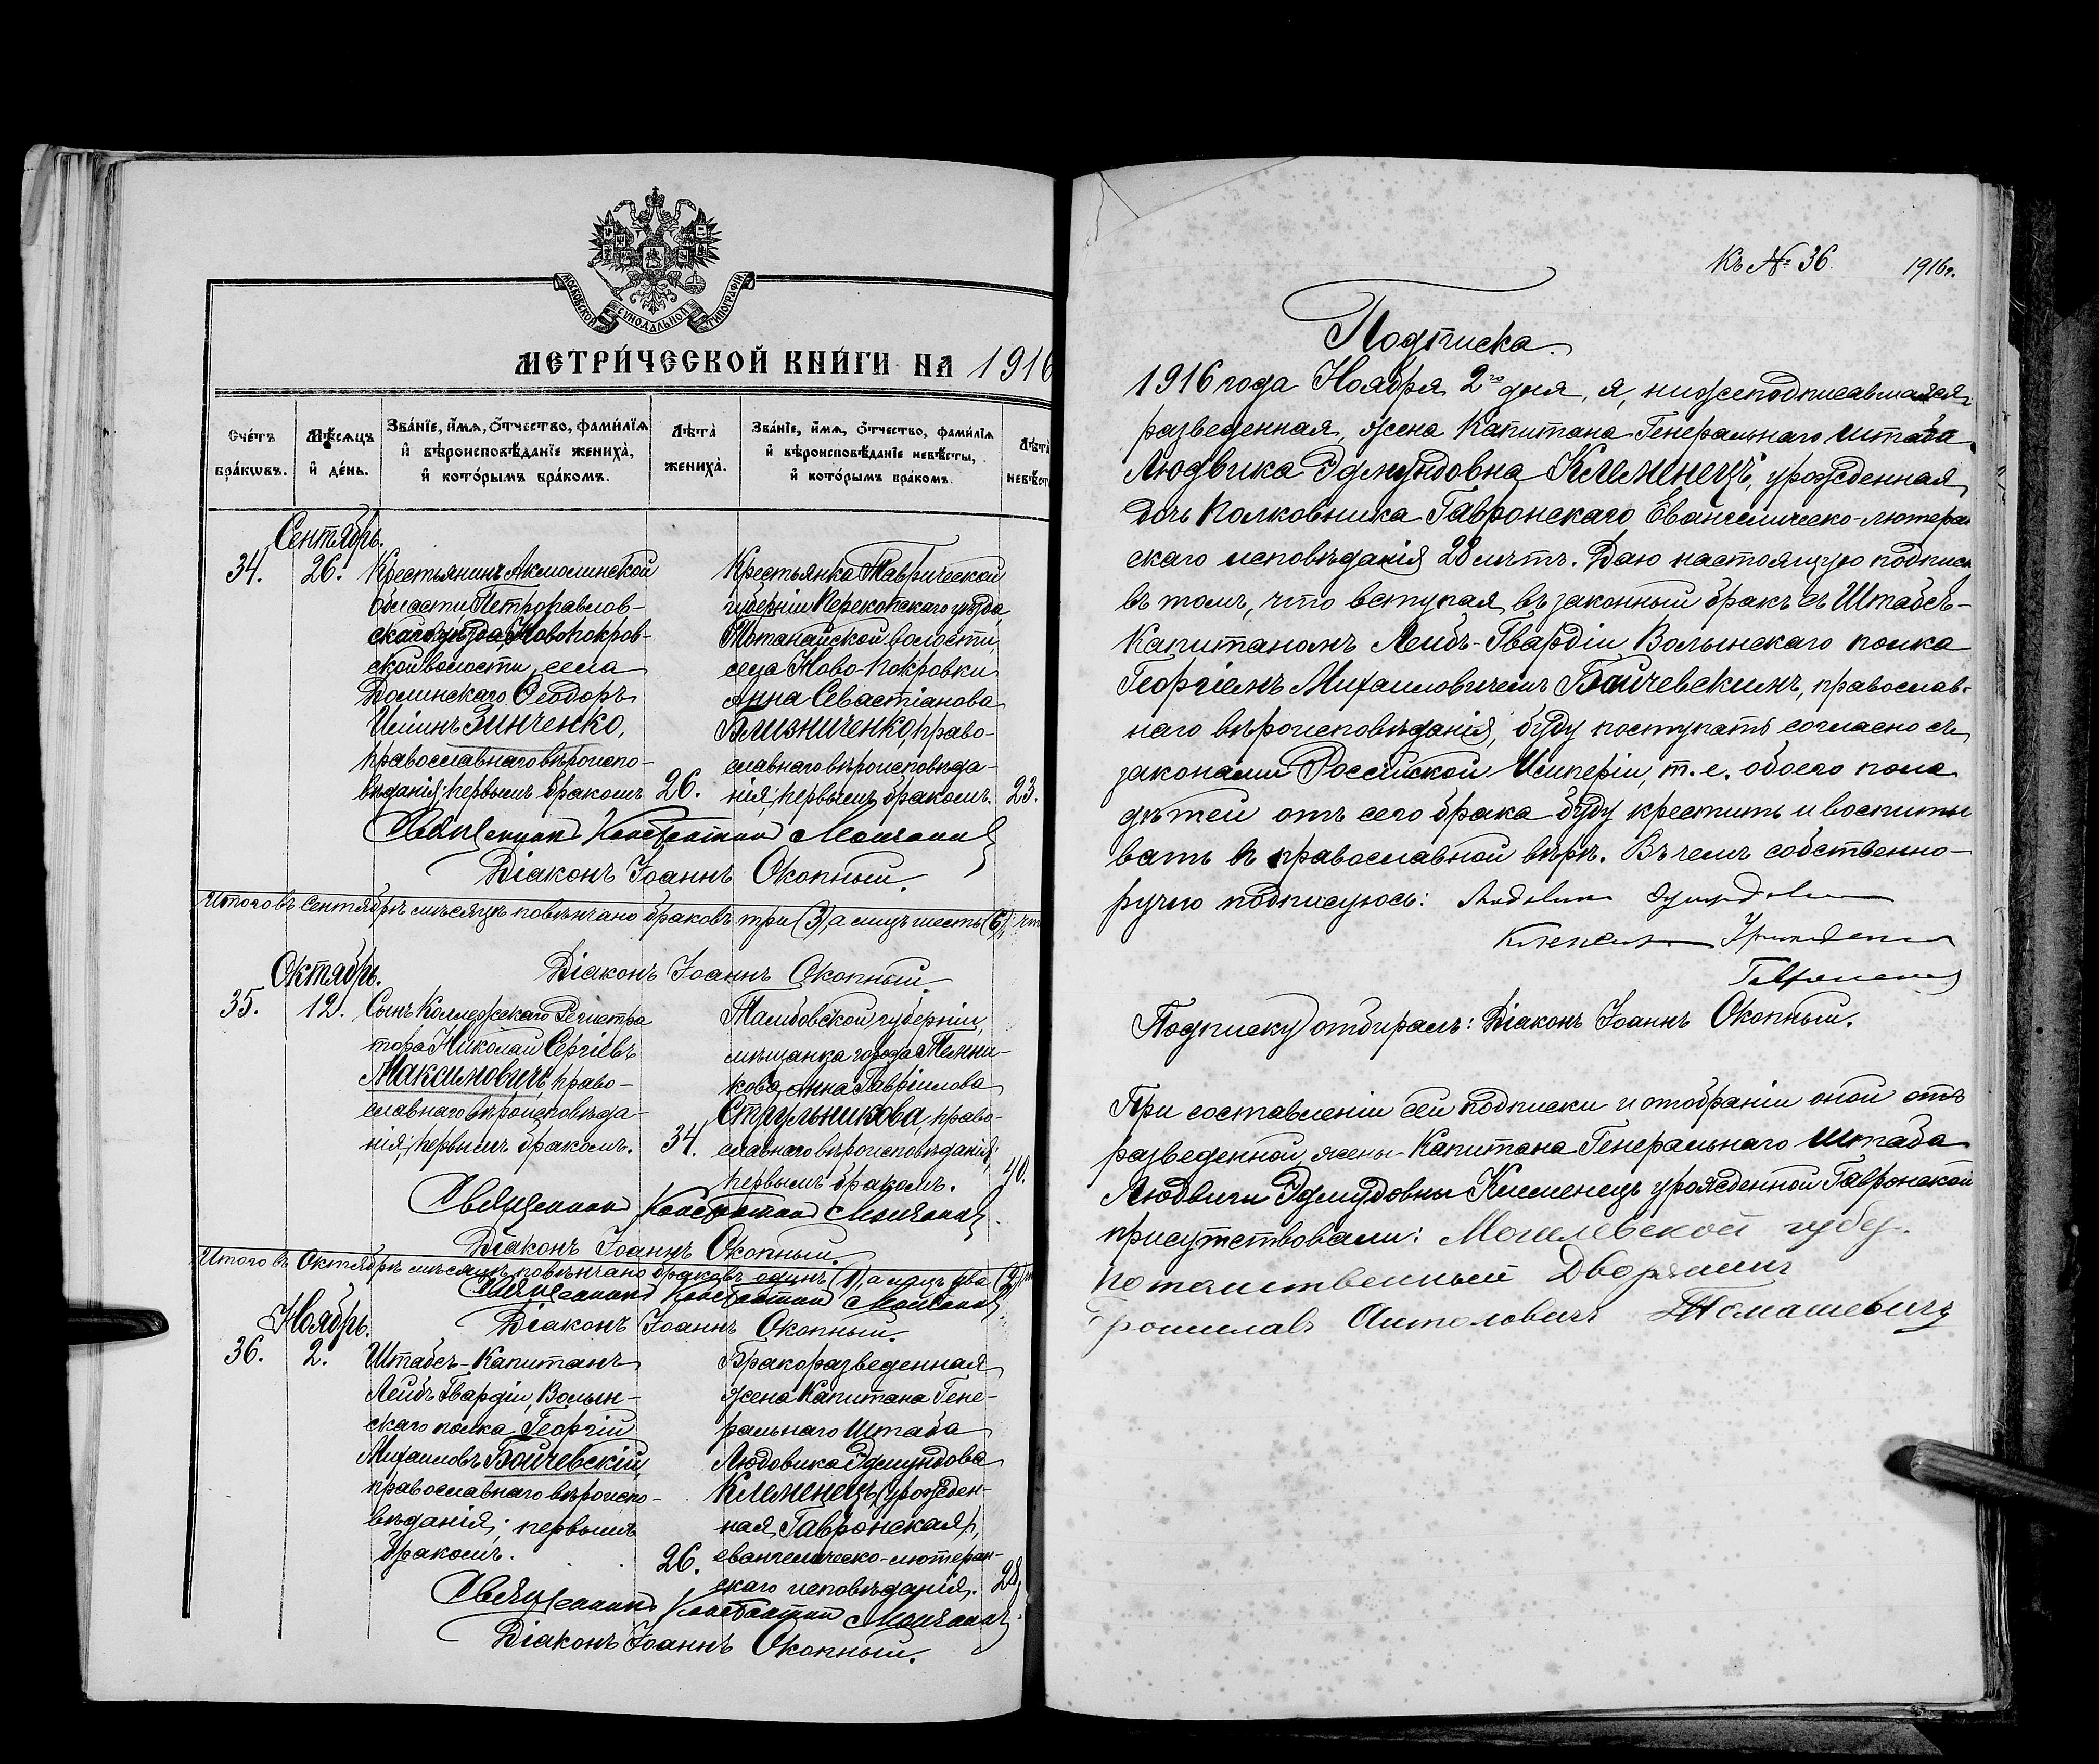 МОСКОВСКОЙ СѴНОДАЛЬНОЙ ТИПОГРАФІИ.
МЕТРИ́ЧЕСКОЙ КНИ́ГИ НА 1916
Сче́тъ бра́кωвъ.
Мѣ́сяцъ и҆ де́нь.
Зва́нїе, и҆́мѧ, ѻ҆́тчество, фами́лїѧ и҆ вѣроисповѣ́данїе жениха̀, и҆ кото́рымъ бра́комъ.
Лѣта̀ жениха̀.
Зва́нїе, и҆́мѧ, ѻ҆́тчество, фами́лїѧ и҆ вѣроисповѣ́данїе невѣ́сты, и҆ кото́рымъ бра́комъ.
Лѣта̀ невѣ́ст
Сентябрь.
34. 26.
Крестьянинъ Акмолинской
области Петропавлов-
скаго уѣзда, Новопокров-
ской волости, села
Долинскаго Ѳеодоръ
Зинченко,
православнаго вѣроиспо-
вѣданія; первымъ бракомъ
26.
Крестьянка Таврической
губерніи Перекопскаго уѣзда,
волости,
села Ново-Покровки
Анна Севастіанова
Близниченко, право-
славнаго вѣроисповѣда-
нія; первымъ бракомъ.
23.
Священникъ Константинъ
Діаконъ Іоаннъ Окопный.
Итого въ Сентябрѣ мѣсяцѣ повѣнчано браковъ три (3), а лицъ шесть (6);
Діаконъ Іоаннъ Окопный.
Октябрь.
35. 12.
Сынъ Коллежскаго Регистра
тора Николай Сергіевъ
Максимовичъ, право-
славнаго вѣроисповѣда-
нія, первымъ бракомъ.
34.
Тамбовской губерніи,
мѣщанка города Темни-
кова, Анна Гавріилова
Стрѣльникова, право-
славнаго вѣроисповѣданія;
первымъ бракомъ.
40.
Священникъ Константинъ
Діаконъ Іоаннъ Окопный.
Итого въ Октябрѣ мѣсяцѣ повѣнчано браковъ одинъ (1), а лицъ два (2)
Священникъ Константинъ
Діаконъ Іоаннъ Окопный.
Ноябрь.
36. 2.
Штабсъ-Капитанъ
Лейбъ Гвардіи, Волын-
скаго полка Георгій
Михаиловъ Бойчевскій,
православнаго вѣроиспо-
вѣданія; первымъ
бракомъ.
26.
Бракоразведенная
жена Капитана Гене-
ральнаго Штаба
Людовика Эдмундова
Клеменецъ, (урожден-
ная Гавронская),
евангелическо-лютеран-
скаго исповѣданія.
28.
Священникъ Константинъ
Діаконъ Іоаннъ Окопный.
Къ № 36. 1916г.
Подписка.
1916 года Ноября 2го дня, я, нижеподписавшаяся
разведенная, жена Капитана Генеральнаго Штаба
Людвика Эдмундовна Клеменецъ, урожденная
дочь Полковника Гавронскаго, Евангелическо-лютеран
скаго исповѣданія 28 лѣтъ. Даю настоящую подписк
въ томъ, что вступая въ законный бракъ съ Штабсъ-
Капитаномъ Лейбъ-Гвардіи Волынскаго полка
Георгіемъ Михаиловичемъ Бойчевскимъ, православ-
наго вѣроисповѣданія, буду поступать согласно съ
законами Россійской Имперіи, т. е. обоего пола
дѣтей отъ сего брака буду крестить и воспиты
вать въ православной вѣрѣ. Въ чемъ собственно-
ручно подписуюсь:
Подписку отбиралъ: Діаконъ Іоаннъ Окопный.
При составленіи сей подписки и отобраніи оной отъ
разведенной, жены-Капитана Генеральнаго Штаба
Людвиги Эдмудовны Клеменецъ урожденной Гавронской
присутствовали: Могилевской губер.
потомственный Дворянинъ
Томашевичъ